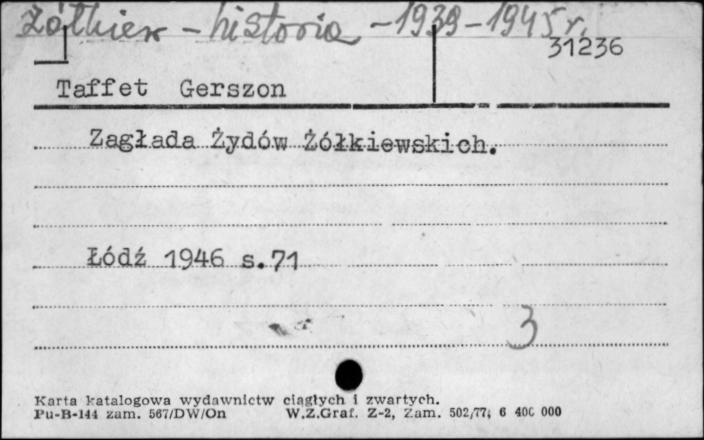 Żółkiew - historia - 1939 - 1945 r.
31236
Taffet Gerszon
Zagłada Żydów Żółkiewskich.
Łódź 1946 s.71
3
Karta katalogowa wydawnictw ciągłych i zwartych.
Pu-B-144 zam. 567/DW/On W.Z.Graf. Z-2, Zam. 502/77; 6 400 000